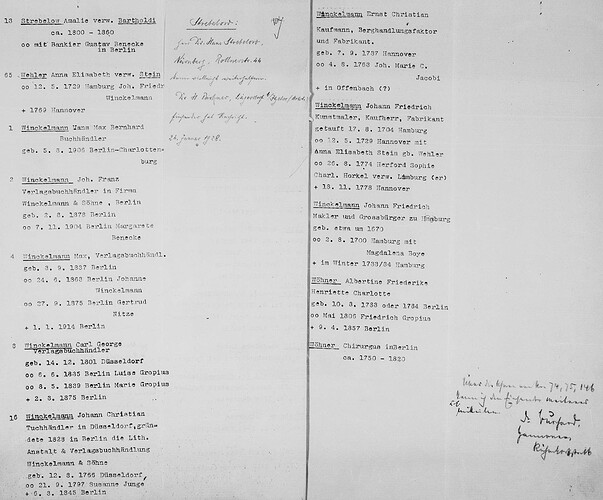 13 Strebelow Amalie verw. Bartholdi
ca. 1800 - 1860
oo mit Bankier Gustav Benecke
in Berlin
65 Wehler Anna Elisabeth verw. Stein
oo 12. 5. 1729 Hamburg Joh. Friedr
Winckelmann
+ 1769 Hannover
1 Winckelmann Hans Max Bernhard
Buchhändler
geb. 5. 3. 1906 Berlin-Charlotten-
burg
2 Winckelmann Joh. Franz
Verlagsbuchhändler in Firma
Winckelmann & Söhne , Berlin
geb. 2. 8. 1878 Berlin
oo 7. 11. 1904 Berlin Margarete
Benecke
4 Winckelmann Max, Verlagsbuchhändl.
geb. 3. 9. 1837 Berlin
oo 24. 6. 1863 Berlin Johanne
Winckelmann
oo 27. 9. 1875 Berlin Gertrud
Nitze
+ 1. 1. 1914 Berlin
8 Winckelmann Carl George
Verlagsbuchhändler
geb. 14. 12. 1801 Düsseldorf
oo 6. 6. 1835 Berlin Luise Gropius
oo 8. 5. 1839 Berlin Marie Gropius
+ 2. 3. 1875 Berlin
16 Winckelmann Johann Christian
Tuchhändler in Düsseldorf, grün-
dete 1828 in Berlin die Lith.
Anstalt & Verlagsbuchhändlung
Winckelmann & Söhne
geb. 12. 8. 1766 Düsseldorf
oo 21. 9. 1797 Susanne Junge
+ 6. 3. 1845 Berlin
Strebelow:
Dr. Hans Strebelow,
Nürnberg,
Dr. H.
24. Januar 1938.
Winckelmann Ernst Christian
Kaufmann, Berghandlungsfaktor
und Fabrikant.
geb. 7. 9. 1737 Hannover
oo 4. 8. 1763 Joh. Marie C.
Jacobi
+ in Offenbach (?)
Winckelmann Johann Friedrich
Kunstmaler, Kaufherr, Fabrikant
getauft 17. 8. 1704 Hamburg
oo 12. 5. 1729 Hannover mit
Anna Elisabeth Stein gb. Wehler
oo 26. 8. 1774 Herford Sophie
Charl. Horkel verw. Limburg (er)
+ 18. 11. 1778 Hannover
Winckelmann Johann Friedrich
Makler und Grossbürger zu Hamburg
geb. etwa um 1670
oo 2. 8. 1700 Hamburg mit
Magdalena Boye
+ im Winter 1733/34 Hamburg
Wöhner Albertine Friederike
Henriette Charlotte
geb. 10. 3. 1783 oder 1784 Berlin
oo Mai 1805 Friedrich Gropius
+ 9. 4. 1857 Berlin
Wöhner Chirurgus inBerlin
ca. 1750 - 1820
Über die Ahnen von Nr. 74, 75, 146
Dr.
Hannover,